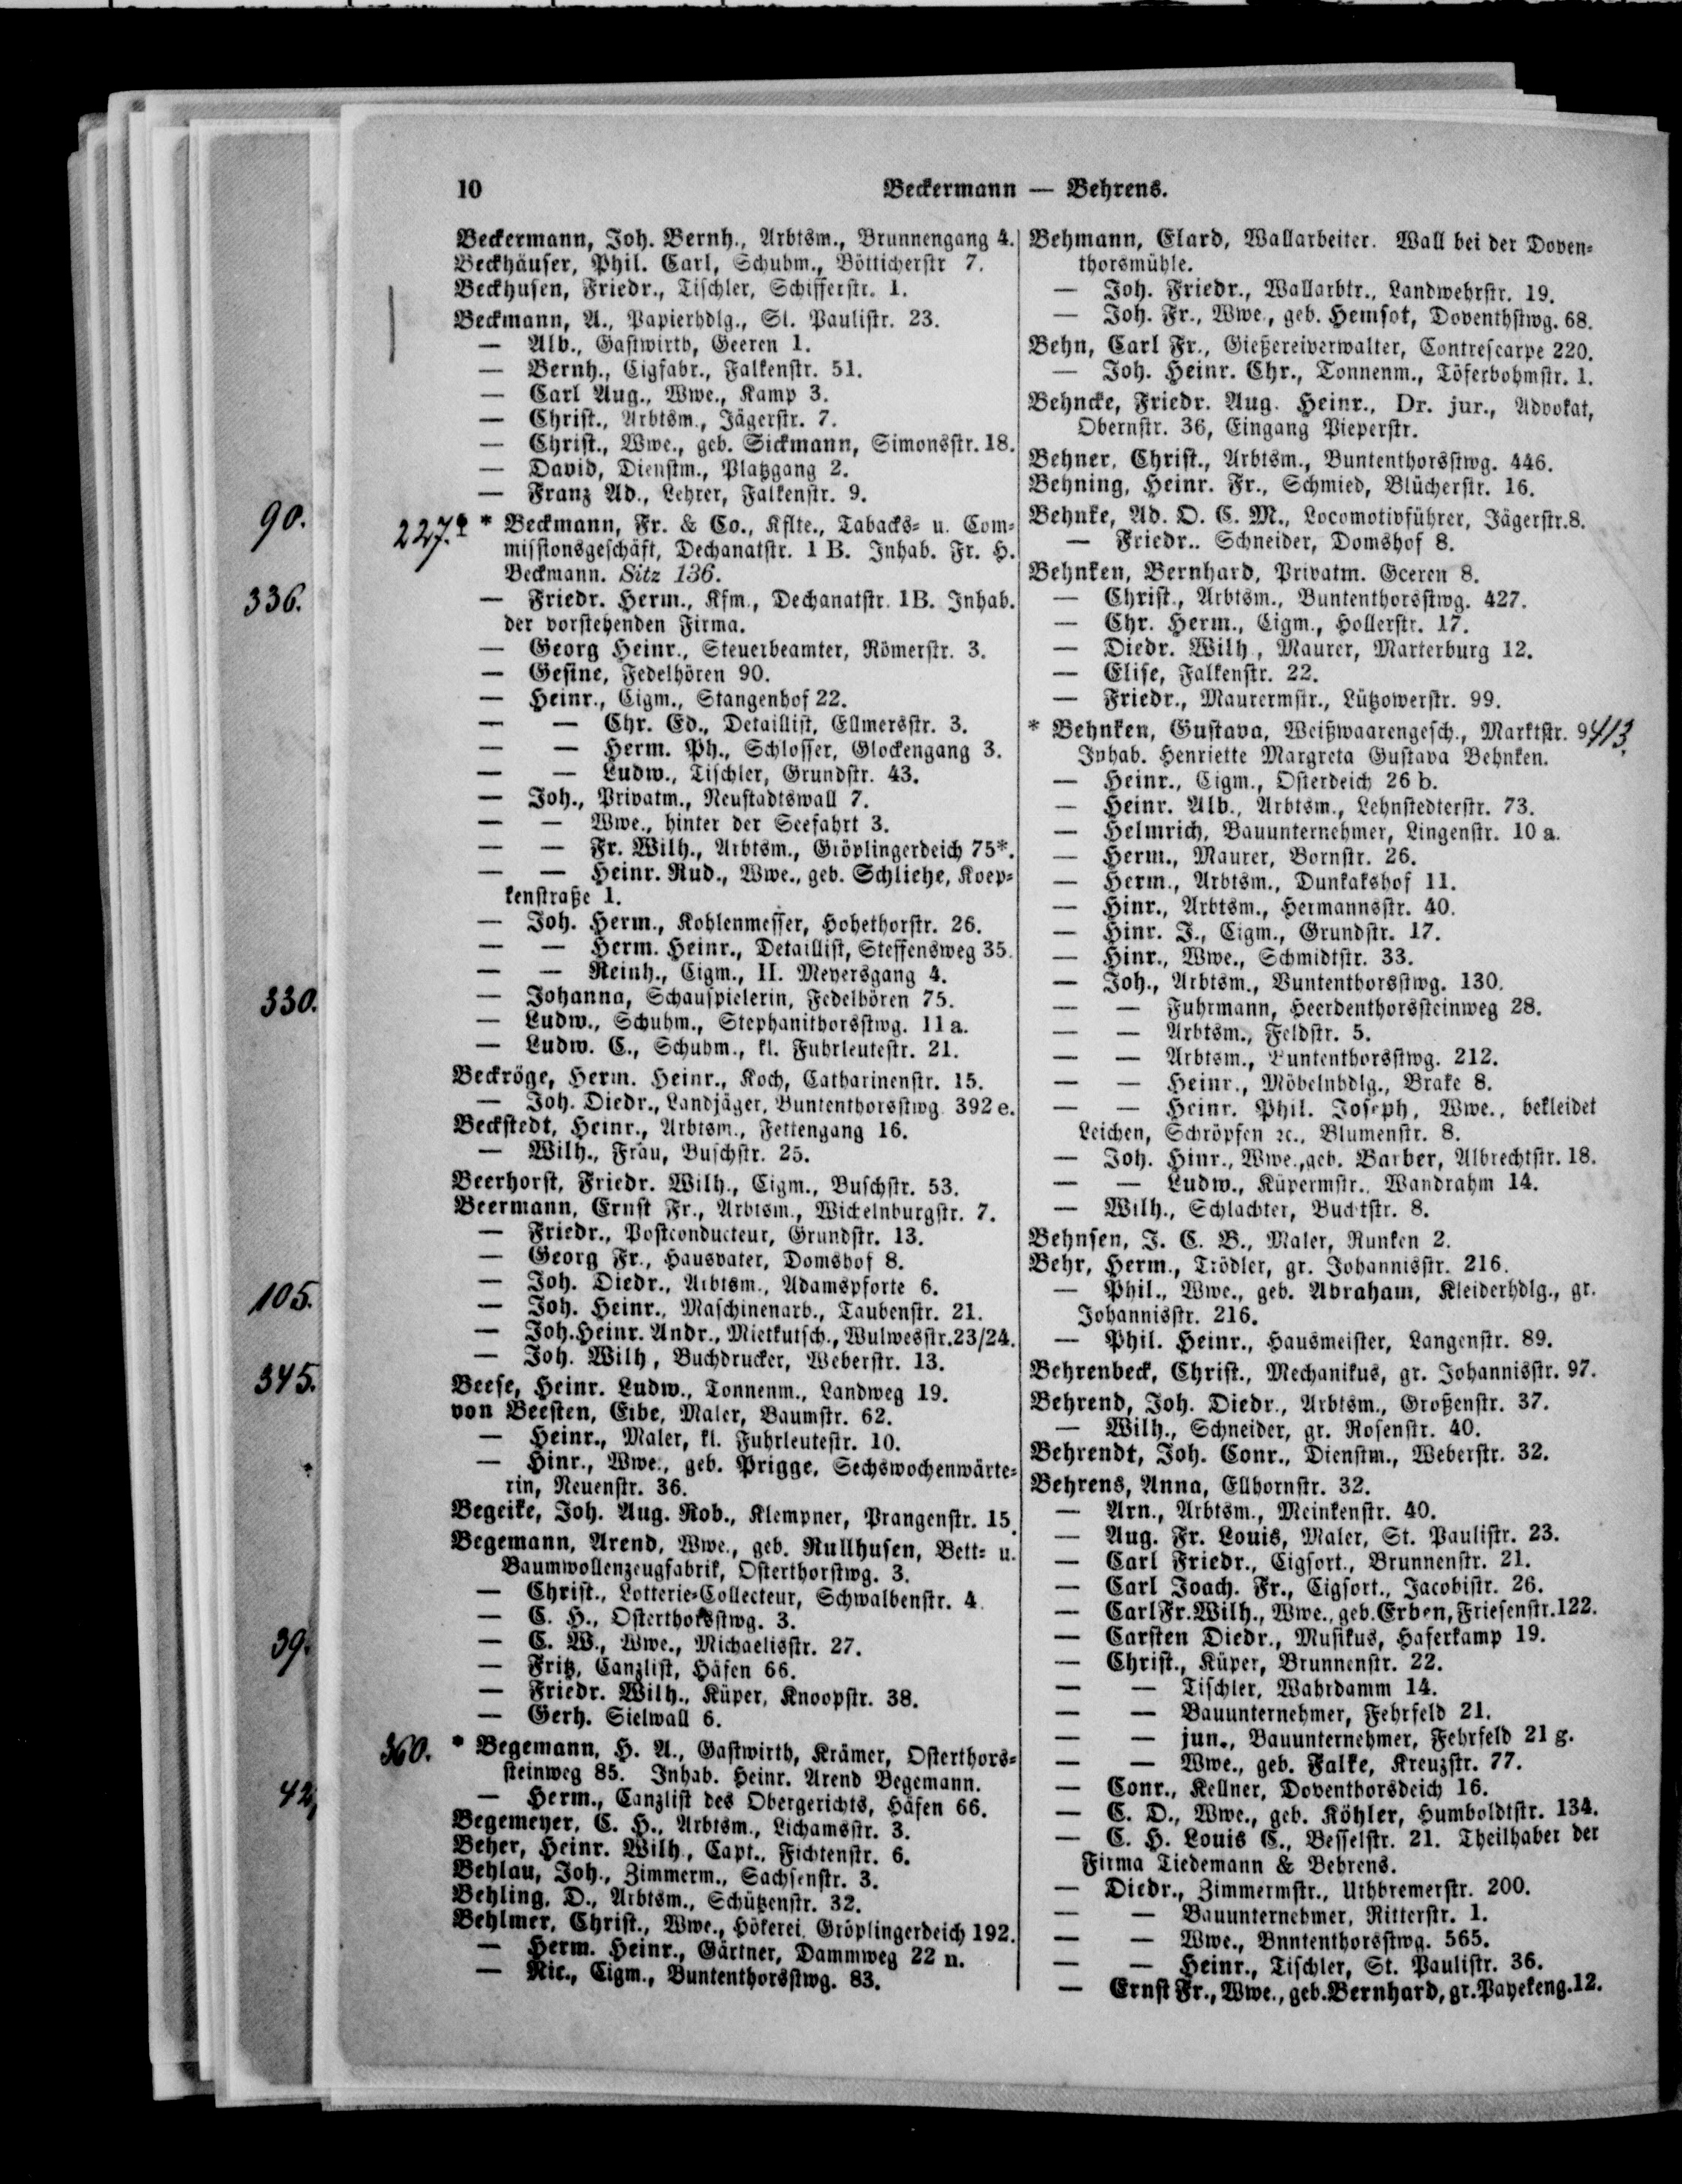 10
Beckermann — Behrens.
Beckermann, Joh. Bernh., Arbtsm., Brunnengang 4.
Beckhäuser, Phil. Carl, Schuhm., Bötticherstr 7.
Beckhusen, Friedr., Tischler, Schifferstr. 1.
Beckmann, A., Papierhdlg., St. Paulistr. 23.
— Alb., Gastwirth, Geeren 1.
— Bernh., Cigfabr., Falkenstr. 51.
— Carl Aug., Wwe., Kamp 3.
— Christ., Arbtsm., Jägerstr. 7.
— Christ., Wwe., geb. Sickmann, Simonsstr. 18.
— David, Dienstm., Platzgang 2.
— Franz Ad., Lehrer, Falkenstr. 9.
90.
227.
* Beckmann, Fr. & Co., Kflte., Tabacks- u. Com-
missionsgeschäft, Dechanatstr. 1 B. Inhab. Fr. H.
Beckmann. Sitz 136.
336.
— Friedr. Herm., Kfm., Dechanatstr. 1B. Inhab.
der vorstehenden Firma.
— Georg Heinr., Steuerbeamter, Römerstr. 3.
— Gesine, Fedelhören 90.
— Heinr., Cigm., Stangenhof 22.
— — Chr. Ed., Detaillist, Ellmersstr. 3.
— — Herm. Ph., Schlosser, Glockengang 3.
— — Ludw., Tischler, Grundstr. 43.
— Joh., Privatm., Neustadtswall 7.
— — Wwe., hinter der Seefahrt 3.
— — Fr. Wilh., Arbtsm., Gröplingerdeich 75*.
— — Heinr. Rud., Wwe., geb. Schliehe, Koep-
kenstraße 1.
— Joh. Herm., Kohlenmesser, Hohethorstr. 26.
— — Herm. Heinr., Detaillist, Steffensweg 35.
— — Reinh., Cigm., II. Meyersgang 4.
330.
— Johanna, Schauspielerin, Fedelhören 75.
— Ludw., Schuhm., Stephanithorsstwg. 11a.
— Ludw. C., Schuhm., kl. Fuhrleutestr. 21.
Beckröge, Herm. Heinr., Koch, Catharinenstr. 15.
— Joh. Diedr., Landjäger, Buntenthorsstwg. 392 e.
Beckstedt, Heinr., Arbtsm., Fettengang 16.
— Wilh., Frau, Buschstr. 25.
Beerhorst, Friedr. Wilh., Cigm., Buschstr. 53.
Beermann, Ernst Fr., Arbtsm., Wickelnburgstr. 7.
— Friedr., Postconducteur, Grundstr. 13.
— Georg Fr., Hausvater, Domshof 8.
— Joh. Diedr., Arbtsm., Adamspforte 6.
105.
— Joh. Heinr., Maschinenarb., Taubenstr. 21.
— Joh. Heinr. Andr., Mietkutsch., Wulwesstr. 23/24.
— Joh. Wilh, Buchdrucker, Weberstr. 13.
345.
Beese, Heinr. Ludw., Tonnenm., Landweg 19.
von Beesten, Eibe, Maler, Baumstr. 62.
— Heinr., Maler, kl. Fuhrleutestr. 10.
— Hinr., Wwe., geb. Prigge, Sechswochenwärte-
rin, Neuenstr. 36.
Begeike, Joh. Aug. Rob., Klempner, Prangenstr. 15.
Begemann, Arend, Wwe., geb. Rullhusen, Bett- u.
Baumwollenzeugfabrik, Osterthorstwg. 3.
— Christ., Lotterie-Collecteur, Schwalbenstr. 4.
— C. H., Osterthorsstwg. 3.
39.
— C. W., Wwe., Michaelisstr. 27.
— Fritz, Canzlist, Häfen 66.
— Friedr. Wilh., Küper, Knoopstr. 38.
— Gerh. Sielwall 6.
360.
* Begemann, H. A., Gastwirth, Krämer, Osterthors-
steinweg 85. Inhab. Heinr. Arend Begemann.
42,
— Herm., Canzlist des Obergerichts, Häfen 66.
Begemeyer, C. H., Arbtsm., Lichamsstr. 3.
Beher, Heinr. Wilh., Capt., Fichtenstr. 6.
Behlau, Joh., Zimmerm., Sachsenstr. 3.
Behling, D., Arbtsm., Schützenstr. 32.
Behlmer, Christ., Wwe., Hökerei, Gröplingerdeich 192.
— Herm. Heinr., Gärtner, Dammweg 22 n.
— Nic., Cigm., Buntenthorsstwg. 83.
Behmann, Elard, Wallarbeiter. Wall bei der Doven-
thorsmühle.
— Joh. Friedr., Wallarbtr., Landwehrstr. 19.
— Joh. Fr., Wwe., geb. Hemsot, Doventhstwg. 68.
Behn, Carl Fr., Gießereiverwalter, Contrescarpe 220.
— Joh. Heinr. Chr., Tonnenm., Töferbohmstr. 1.
Behncke, Friedr. Aug. Heinr., Dr. jur., Advokat,
Obernstr. 36, Eingang Pieperstr.
Behner, Christ., Arbtsm., Buntenthorsstwg. 446.
Behning, Heinr. Fr., Schmied, Blücherstr. 16.
Behnke, Ad. O. C. M., Locomotivführer, Jägerstr. 8.
— Friedr.. Schneider, Domshof 8.
Behnken, Bernhard, Privatm. Geeren 8.
— Christ., Arbtsm., Buntenthorsstwg. 427.
— Chr. Herm., Cigm., Hollerstr. 17.
— Diedr. Wilh, Maurer, Marterburg 12.
— Elise, Falkenstr. 22.
— Friedr., Maurermstr., Lützowerstr. 99.
* Behnken, Gustava, Weißwaarengesch., Marktstr. 9
413.
Inhab. Henriette Margreta Gustava Behnken.
— Heinr., Cigm., Osterdeich 26 b.
— Heinr. Alb., Arbtsm., Lehnstedterstr. 73.
— Helmrich, Bauunternehmer, Lingenstr. 10 a.
— Herm., Maurer, Bornstr. 26.
— Herm., Arbtsm., Dunkakshof 11.
— Hinr., Arbtsm., Hermannsstr. 40.
— Hinr. J., Cigm., Grundstr. 17.
— Hinr., Wwe., Schmidtstr. 33.
— Joh., Arbtsm., Buntenthorsstwg. 130.
— — Fuhrmann, Heerdenthorssteinweg 28.
— — Arbtsm., Feldstr. 5.
— — Arbtsm., Buntenthorsstwg. 212.
— — Heinr., Möbelnhdlg., Brake 8.
— — Heinr. Phil. Joseph, Wwe., bekleidet
Leichen, Schröpfen ꝛc., Blumenstr. 8.
— Joh. Hinr., Wwe., geb. Barber, Albrechtstr. 18.
— — Ludw., Küpermstr., Wandrahm 14.
— Wilh., Schlachter, Buchtstr. 8.
Behnsen, J. C. B., Maler, Runken 2.
Behr, Herm., Trödler, gr. Johannisstr. 216.
— Phil., Wwe., geb. Abraham, Kleiderhdlg., gr.
Johannisstr. 216.
— Phil. Heinr., Hausmeister, Langenstr. 89.
Behrenbeck, Christ., Mechanikus, gr. Johannisstr. 97.
Behrend, Joh. Diedr., Arbtsm., Großenstr. 37.
— Wilh., Schneider, gr. Rosenstr. 40.
Behrendt, Joh. Conr., Dienstm., Weberstr. 32.
Behrens, Anna, Ellhornstr. 32.
— Arn., Arbtsm., Meinkenstr. 40.
— Aug. Fr. Louis, Maler, St. Paulistr. 23.
— Carl Friedr., Cigsort., Brunnenstr. 21.
— Carl Joach. Fr., Cigsort., Jacobistr. 26.
— Carl Fr. Wilh., Wwe., geb. Erben, Friesenstr. 122.
— Carsten Diedr., Musikus, Haferkamp 19.
— Christ., Küper, Brunnenstr. 22.
— — Tischler, Wahrdamm 14.
— — Bauunternehmer, Fehrfeld 21.
— — jun., Bauunternehmer, Fehrfeld 21 g.
— — Wwe., geb. Falke, Kreuzstr. 77.
— Conr., Kellner, Doventhorsdeich 16.
— C. D., Wwe., geb. Köhler, Humboldtstr. 134.
— C. H. Louis C., Besselstr. 21. Theilhaber der
Firma Tiedemann & Behrens.
— Diedr., Zimmermstr., Uthbremerstr. 200.
— — Bauunternehmer, Ritterstr. 1.
— — Wwe., Bnntenthorsstwg. 565.
— — Heinr., Tischler, St. Paulistr. 36.
— Ernst Fr., Wwe., geb. Bernhard, gr. Payekeng. 12.